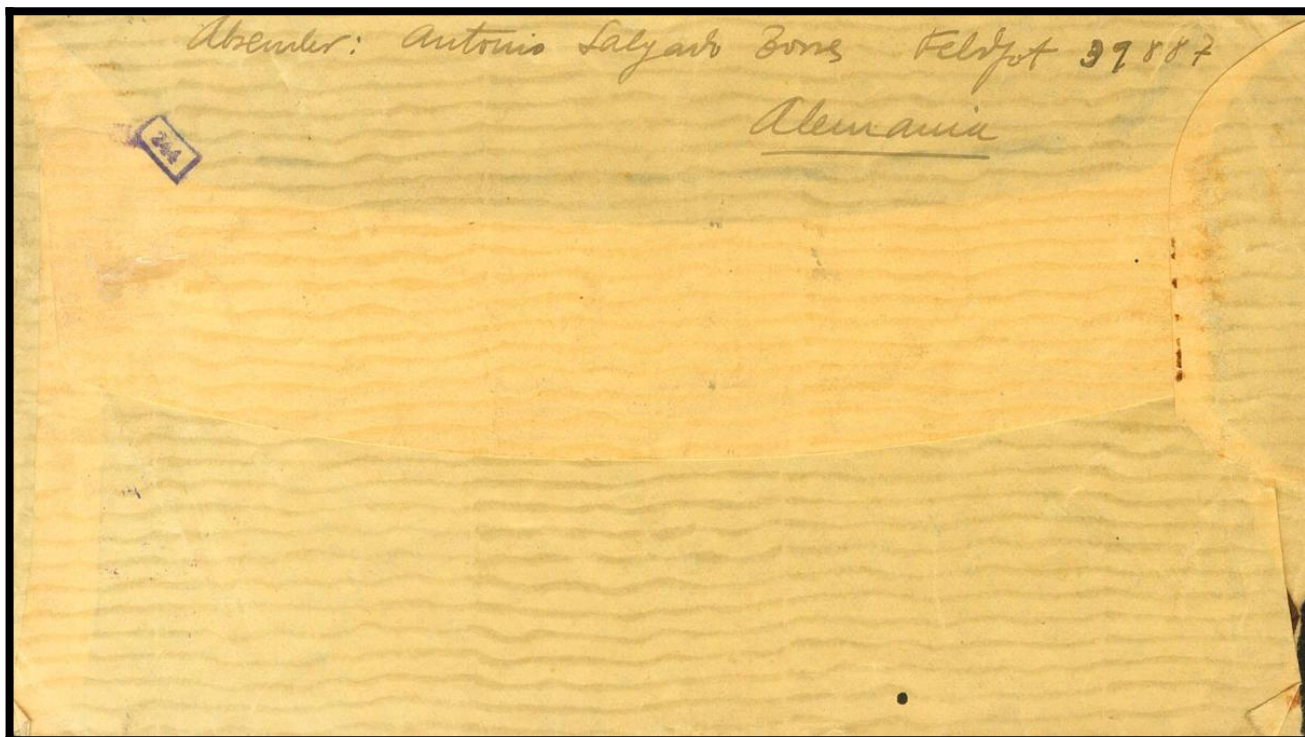 Absender: Antonio Salgado Feldpost 39887
Alemania
244